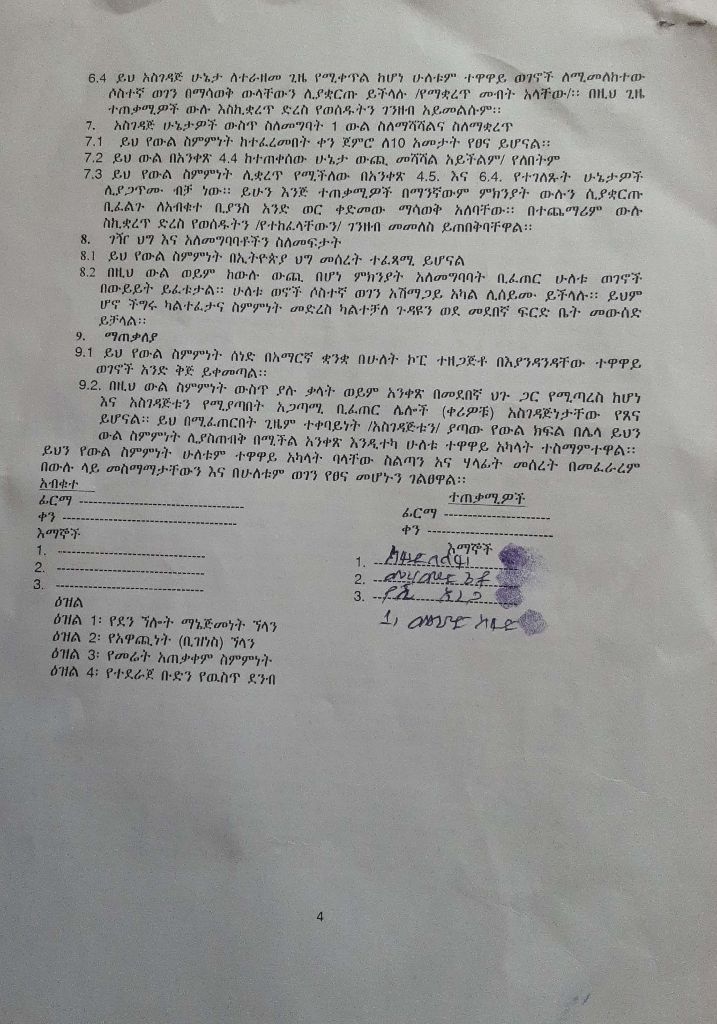 6.4 ይህ አስገዳጅ ሁኔታ ለተራዘመ ጊዜ የሚቀጥል ከሆነ ሁለቱም ተዋዋይ ወገኖች ለሚመለከተው
ሶስተኛ ወገን በማሳወቅ ውላቸውን ሊያቋርጡ ይችላሉ /የማቋረጥ መብት አላቸው/። በዚህ ጊዜ
ተጠቃሚዎች ውሉ እስኪቋረጥ ድረስ የወሰዱትን ገንዘብ አይመልሱም።
7. አስገዳጅ ሁኔታዎች ውስጥ ስለመግባት 1 ውል ስለማሻሻልና ስለማቋረጥ
7.1 ይህ የውል ስምምነት ከተፈረመበት ቀን ጀምሮ ለ10 አመታት የፀና ይሆናል።
7.2 ይህ ውል በአንቀጽ 4.4 ከተጠቀሰው ሁኔታ ውጪ መሻሻል አይችልም/ የለበትም
7.3 ይህ የውል ስምምነት ሊቋረጥ የሚችለው በአንቀጽ 4.5. እና 6.4. የተገለጹት ሁኔታዎች
ሲያጋጥሙ ብቻ ነው። ይሁን እንጅ ተጠቃሚዎች በማንኛውም ምክንያት ውሉን ሲያቋርጡ
ቢፈልጉ ለአብቁተ ቢያንስ አንድ ወር ቀድመው ማሳወቅ አለባቸው። በተጨማሪም ውሉ
ስኪቋረጥ ድረስ የወሰዱትን /የተከፈላቸውን/ ገንዘብ መመለስ ይጠበቅባቸዋል።
8. ገዥ ህግ እና አለመግባባቶችን ስለመፍታት
8.1 ይህ የውል ስምምነት በኢትዮጵያ ህግ መሰረት ተፈጻሚ ይሆናል
8.2 በዚህ ውል ወይም ከውሉ ውጪ በሆነ ምክንያት አለመግባባት ቢፈጠር ሁለቱ ወገኖች
በውይይት ይፈቱታል። ሁለቱ ወኖች ሶስተኛ ወገን አሸማጋይ አካል ሊሰይሙ ይችላሉ። ይህም
ሆኖ ችግሩ ካልተፈታና ስምምነት መድረስ ካልተቻለ ጉዳዩን ወደ መደበኛ ፍርድ ቤት መውሰድ
ይቻላል።
9. ማጠቃለያ
9.1 ይህ የውል ስምምነት ሰነድ በአማርኛ ቋንቋ በሁለት ኮፒ ተዘጋጅቶ በእያንዳንዳቸው ተዋዋይ
ወገኖች አንድ ቅጅ ይቀመጣል።
9.2. በዚህ ውል ስምምነት ውስጥ ያሉ ቃላት ወይም አንቀጽ በመደበኛ ህጉ ጋር የሚጣረስ ከሆነ
እና አስገዳጅቱን የሚያጣበት አጋጣሚ ቢፈጠር ሌሎች (ቀሪዎቹ) አስገዳጅነታቸው የጸና
ይሆናል። ይህ በሚፈጠርበት ጊዜም ተቀባይነት /አስገዳጅቱን/ ያጣው የውል ክፍል በሌላ ይህን
ውል ስምምነት ሊያስጠብቅ በሚችል አንቀጽ እንዲተካ ሁለቱ ተዋዋይ አካላት ተስማምተዋል።
ይህን የውል ስምምነት ሁለቱም ተዋዋይ አካላት ባላቸው ስልጣን እና ሃላፊት መሰረት በመፈራረም
በውሉ ላይ መስማማታቸውን እና በሁለቱም ወገን የፀና መሆኑን ገልፀዋል።
አብቁተ
ፊርማ
ቀን
እማኞች
1.
2.
3.
ተጠቃሚዎች
ፊርማ
ቀን
እማኞች
1.
2.
3.
1,
ዕዝል
ዕዝል 1፡ የደን ኘሎት ማኔጅመነት ኘላን
ዕዝል 2፡ የአዋጪነት (ቢዝነስ) ኘላን
ዕዝል 3፡ የመሬት አጠቃቀም ስምምነት
ዕዝል 4፡ የተደራጀ ቡድን የዉስጥ ደንብ
4